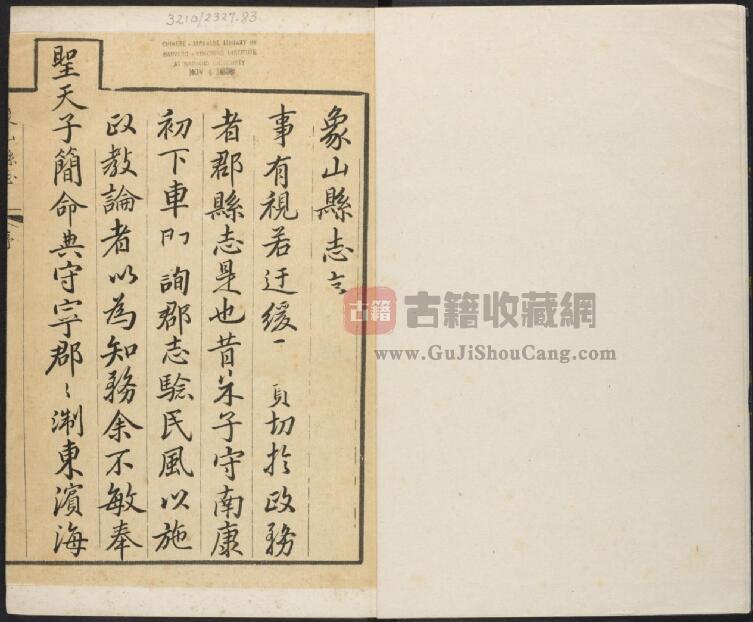 3210/2327.83
CHINESE-JAPANESE LIBRARY OF
HARVARD-YENCHING INSTITUTE
AT HARVARD UNIVERSITY
NOV
象山縣志
事有視若迂緩 切於政務
者郡縣志是也昔朱子守南康
初下車 詢郡志驗民風以施
政教論者以為知務余不敏奉
聖天子簡命典守寧郡〻淛東濱海
山縣志
序
古籍 古籍收藏網
www.GuJiShouCang.com